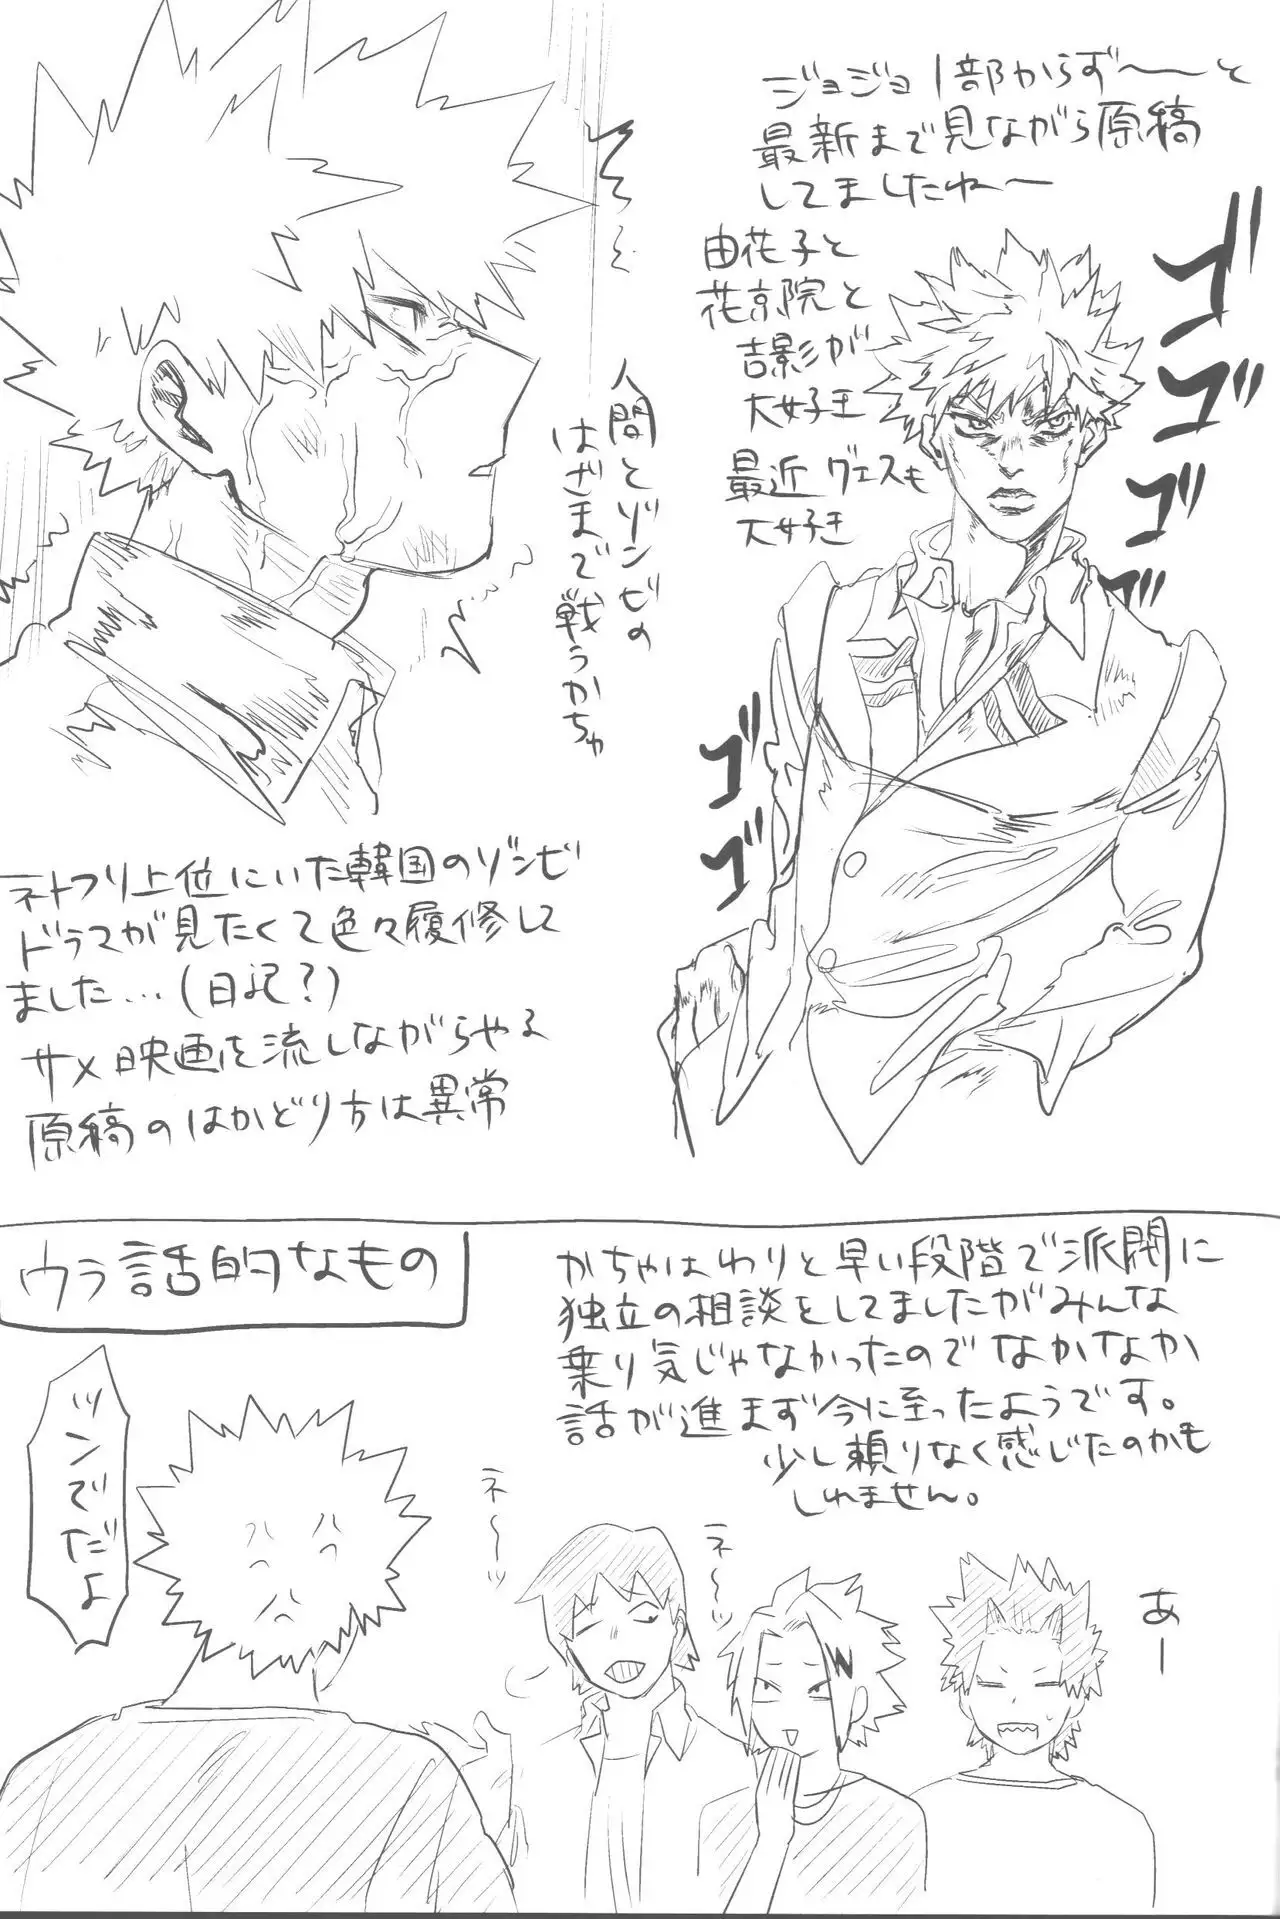 ジョジョ1部からず〜〜と
最新まで見ながら原稿
してましたねー
由花子と
花京院と
吉影が
大好き
最近 グェスも
大好き
ゴ
ゴ
ゴ
ゴ
ゴ
ゴ
人間とゾンビの
はざまで戦うかちゃ
ネトフリ上位にいた韓国のゾンビ
ドラマが見たくて色々履修して
ました…(日記?)
サメ映画を流しながらやる
原稿のはかどり方は異常
ウラ話的なもの
かちゃはわりと早い段階で派閥に
独立の相談をしてましたがみんな
乗り気じゃなかったのでなかなか
話が進まず今に至ったようです。
少し頼りなく感じたのかも
しれません。
ツンでだよ
ネ〜〜ッ
ネ〜〜ッ
あー